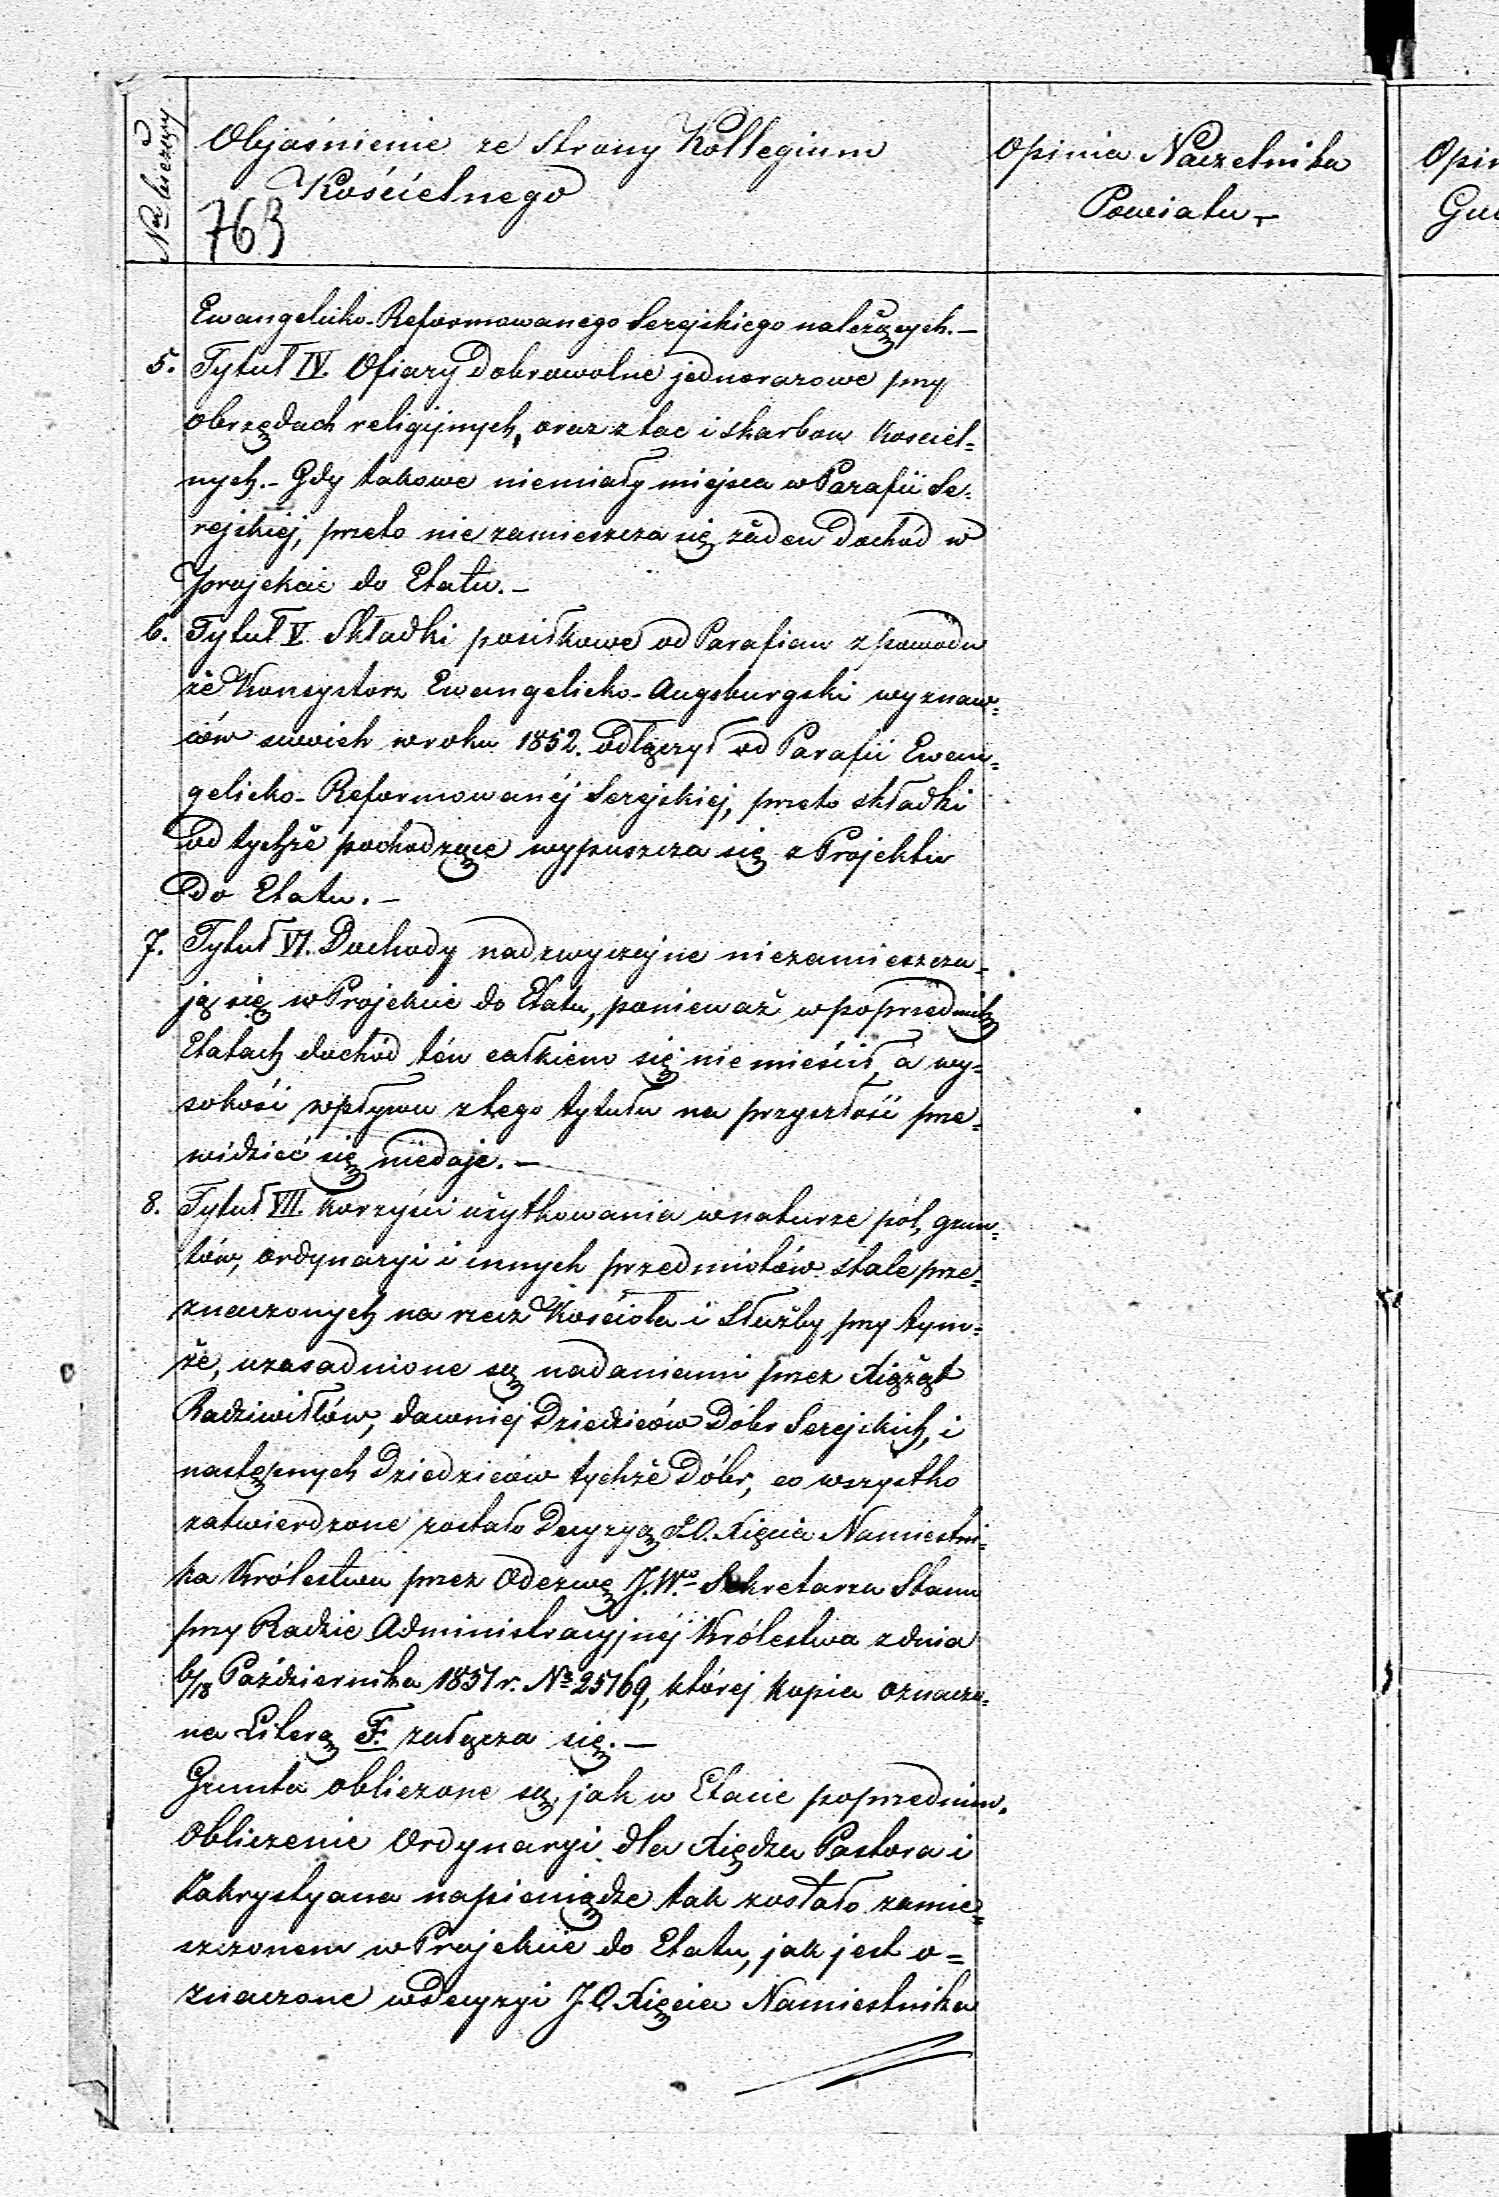 Nr bieżący
Objaśnienie ze strony Kollegium
Kościelnego
763
Opinia Naczelnika
Powiatu
Opin
Gu
Ewangelicko-Reformowanego Serejskiego należących.—
5. Tytuł IV. Ofiary dobrowolne jednorazowe przy
obrzędach religijnych, oraz z tac i skarbon Kościel=
nych.- Gdy takowe niemiały miejsca w Parafii Se=
rejskiej, przeto nie zamieszcza się żaden dochód w
projekcie do Etatu.—
6. Tytuł V. Składki posiłkowe od Parafian z powodu
że Konsystorz Ewangelicko-Augsburgski wyznaw=
ców swoich w roku 1852. odłączył od Parafii Ewan=
gelicko-Reformowanéj Serejskiej, przeto składki
od tychże pochodzące wypuszcza się z Projektu
do Etatu.—
7. Tytuł VI. Dochody nadzwyczajne niezamieszcza=
ją się w Projekcie do Etatu, ponieważ w poprzednich
Etatach dochód ten całkiem się niemieścił, a wy=
sokość wpływu z tego tytułu na przyszłość prze=
widzieć się niedaje.—
8. Tytuł VII. Korzyści użytkowania w naturze pól, grun=
tów, ordynaryi i innych przedmiotów stale prze=
znaczonych na rzecz Kościoła i Służby przy tym=
że, uzasadnione są nadaniami przez Xiążąt
Radziwiłłów, dawniej Dziedziców Dóbr Serejskich, i
następnych Dziedziców tychże Dóbr, co wszystko
zatwierdzone zostało Decyzyą J.O. Xięcia Namiestni=
ka Królestwa przez Odezwę J.W.go Sekretarza Stanu
przy Radzie Administracyjnéj Królestwa z dnia
6/18 Października 1851 r. Nr 25769, której Kopia oznaczo=
na Literą F. załącza się.—
Grunta obliczone są, jak w Etacie poprzednim.
Obliczenie Ordynaryi dla Xiędza Pastora i
Zakrystyana napieniądze tak zostało zamie=
szczonem w Projekcie do Etatu, jak jest o=
znaczone w Decyzyi J.O Xięcia Namiestnika